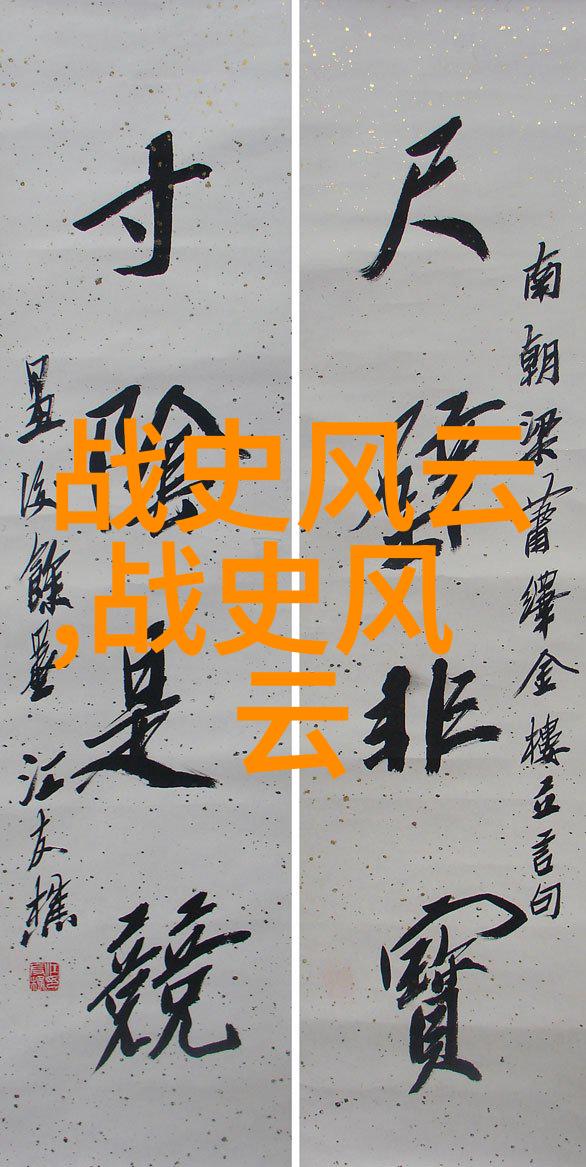 尺璧非寶
南朝梁蕭繹金樓立言句
寸陰是競
汪友樵
战史风云
,战史风
云